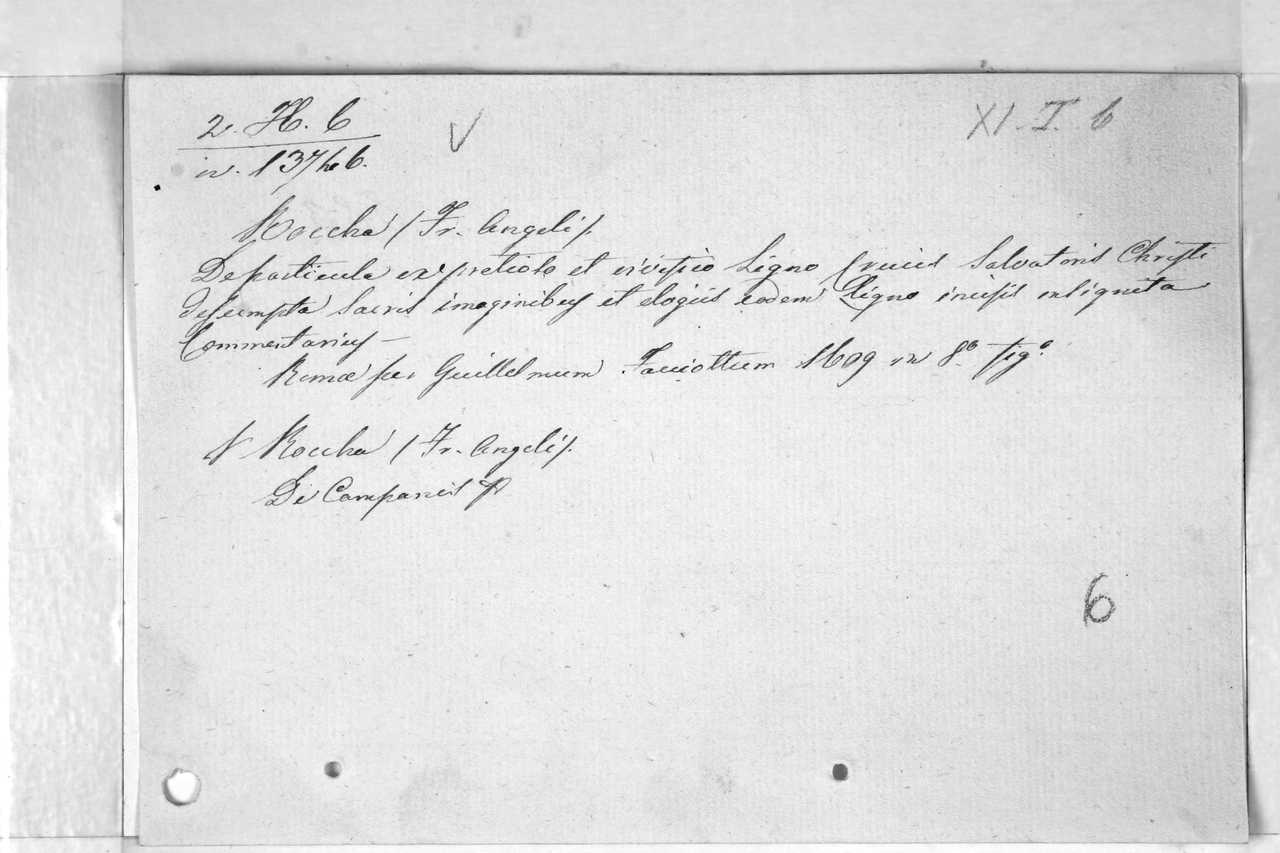 2. H. 6
XI. I. 6
in. 13746.
Roccha (Fr. Angeli).
De particula ex pretioso et vivifico Ligno Crucis Salvatoris Christi
desumpta Sacris imaginibus et elogiis eodem Ligno incisis insignita
Commentarius —
Romæ per Guillelmum Facciottum 1609 in 8º. figº.
Roccha (Fr. Angeli).
De Campanis
6